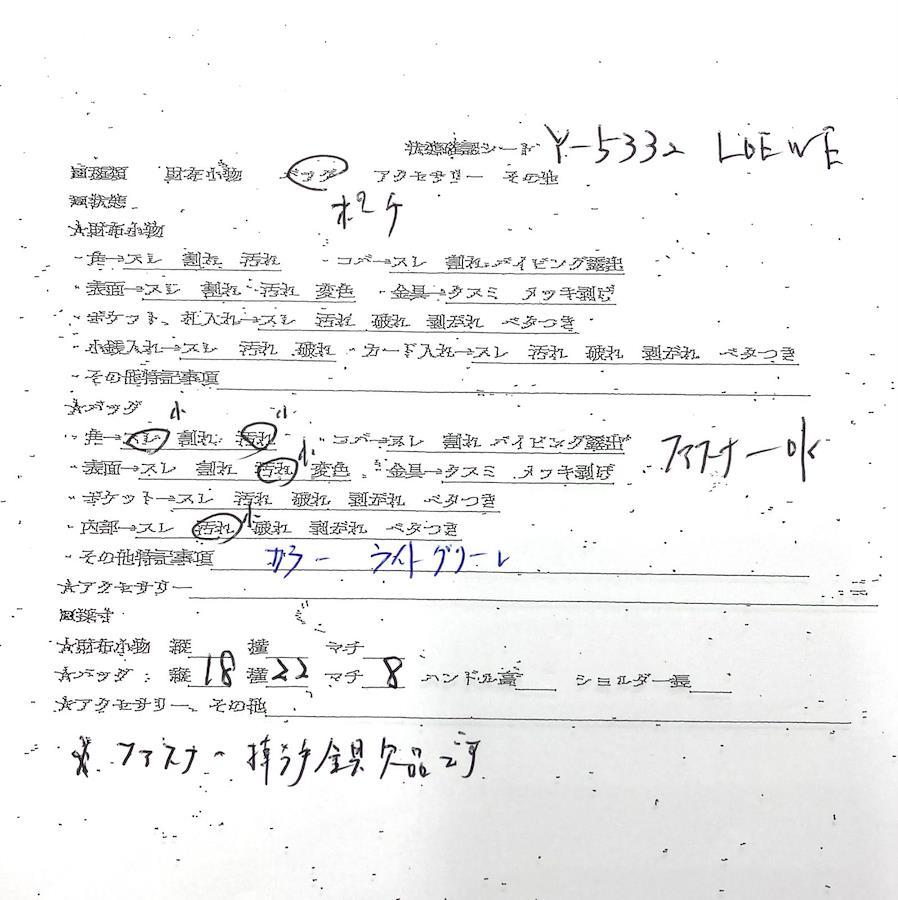 状態確認シート Y-5332 LOEWE
■種類 財布小物 バッグ アクセサリー その他
ポーチ
■状態
★財布小物
・角→スレ 割れ 汚れ ・コバ→スレ 割れ パイピング露出
・表面→スレ 割れ 汚れ 変色 ・金具→クスミ メッキ剥げ
・ポケット、札入れ→スレ 汚れ 破れ 剥がれ ベタつき
・小銭入れ→スレ 汚れ 破れ ・カード入れ→スレ 汚れ 破れ 剥がれ ベタつき
・その他特記事項
★バッグ 小 小
・角→スレ 割れ 汚れ ・コバ→スレ 割れ パイピング露出 ファスナーOK
・表面→スレ 割れ 汚れ 小 変色 ・金具→クスミ メッキ剥げ
・ポケット→スレ 汚れ 破れ 剥がれ ベタつき
・内部→スレ 汚れ 小 破れ 剥がれ ベタつき
・その他特記事項 カラー ライトグリーン
★アクセサリー
■採寸
★財布小物 縦 横 マチ
★バッグ: 縦 18 横 22 マチ 8 ハンドル高 ショルダー長
★アクセサリー、その他
※ファスナー 持ち手金具欠品です